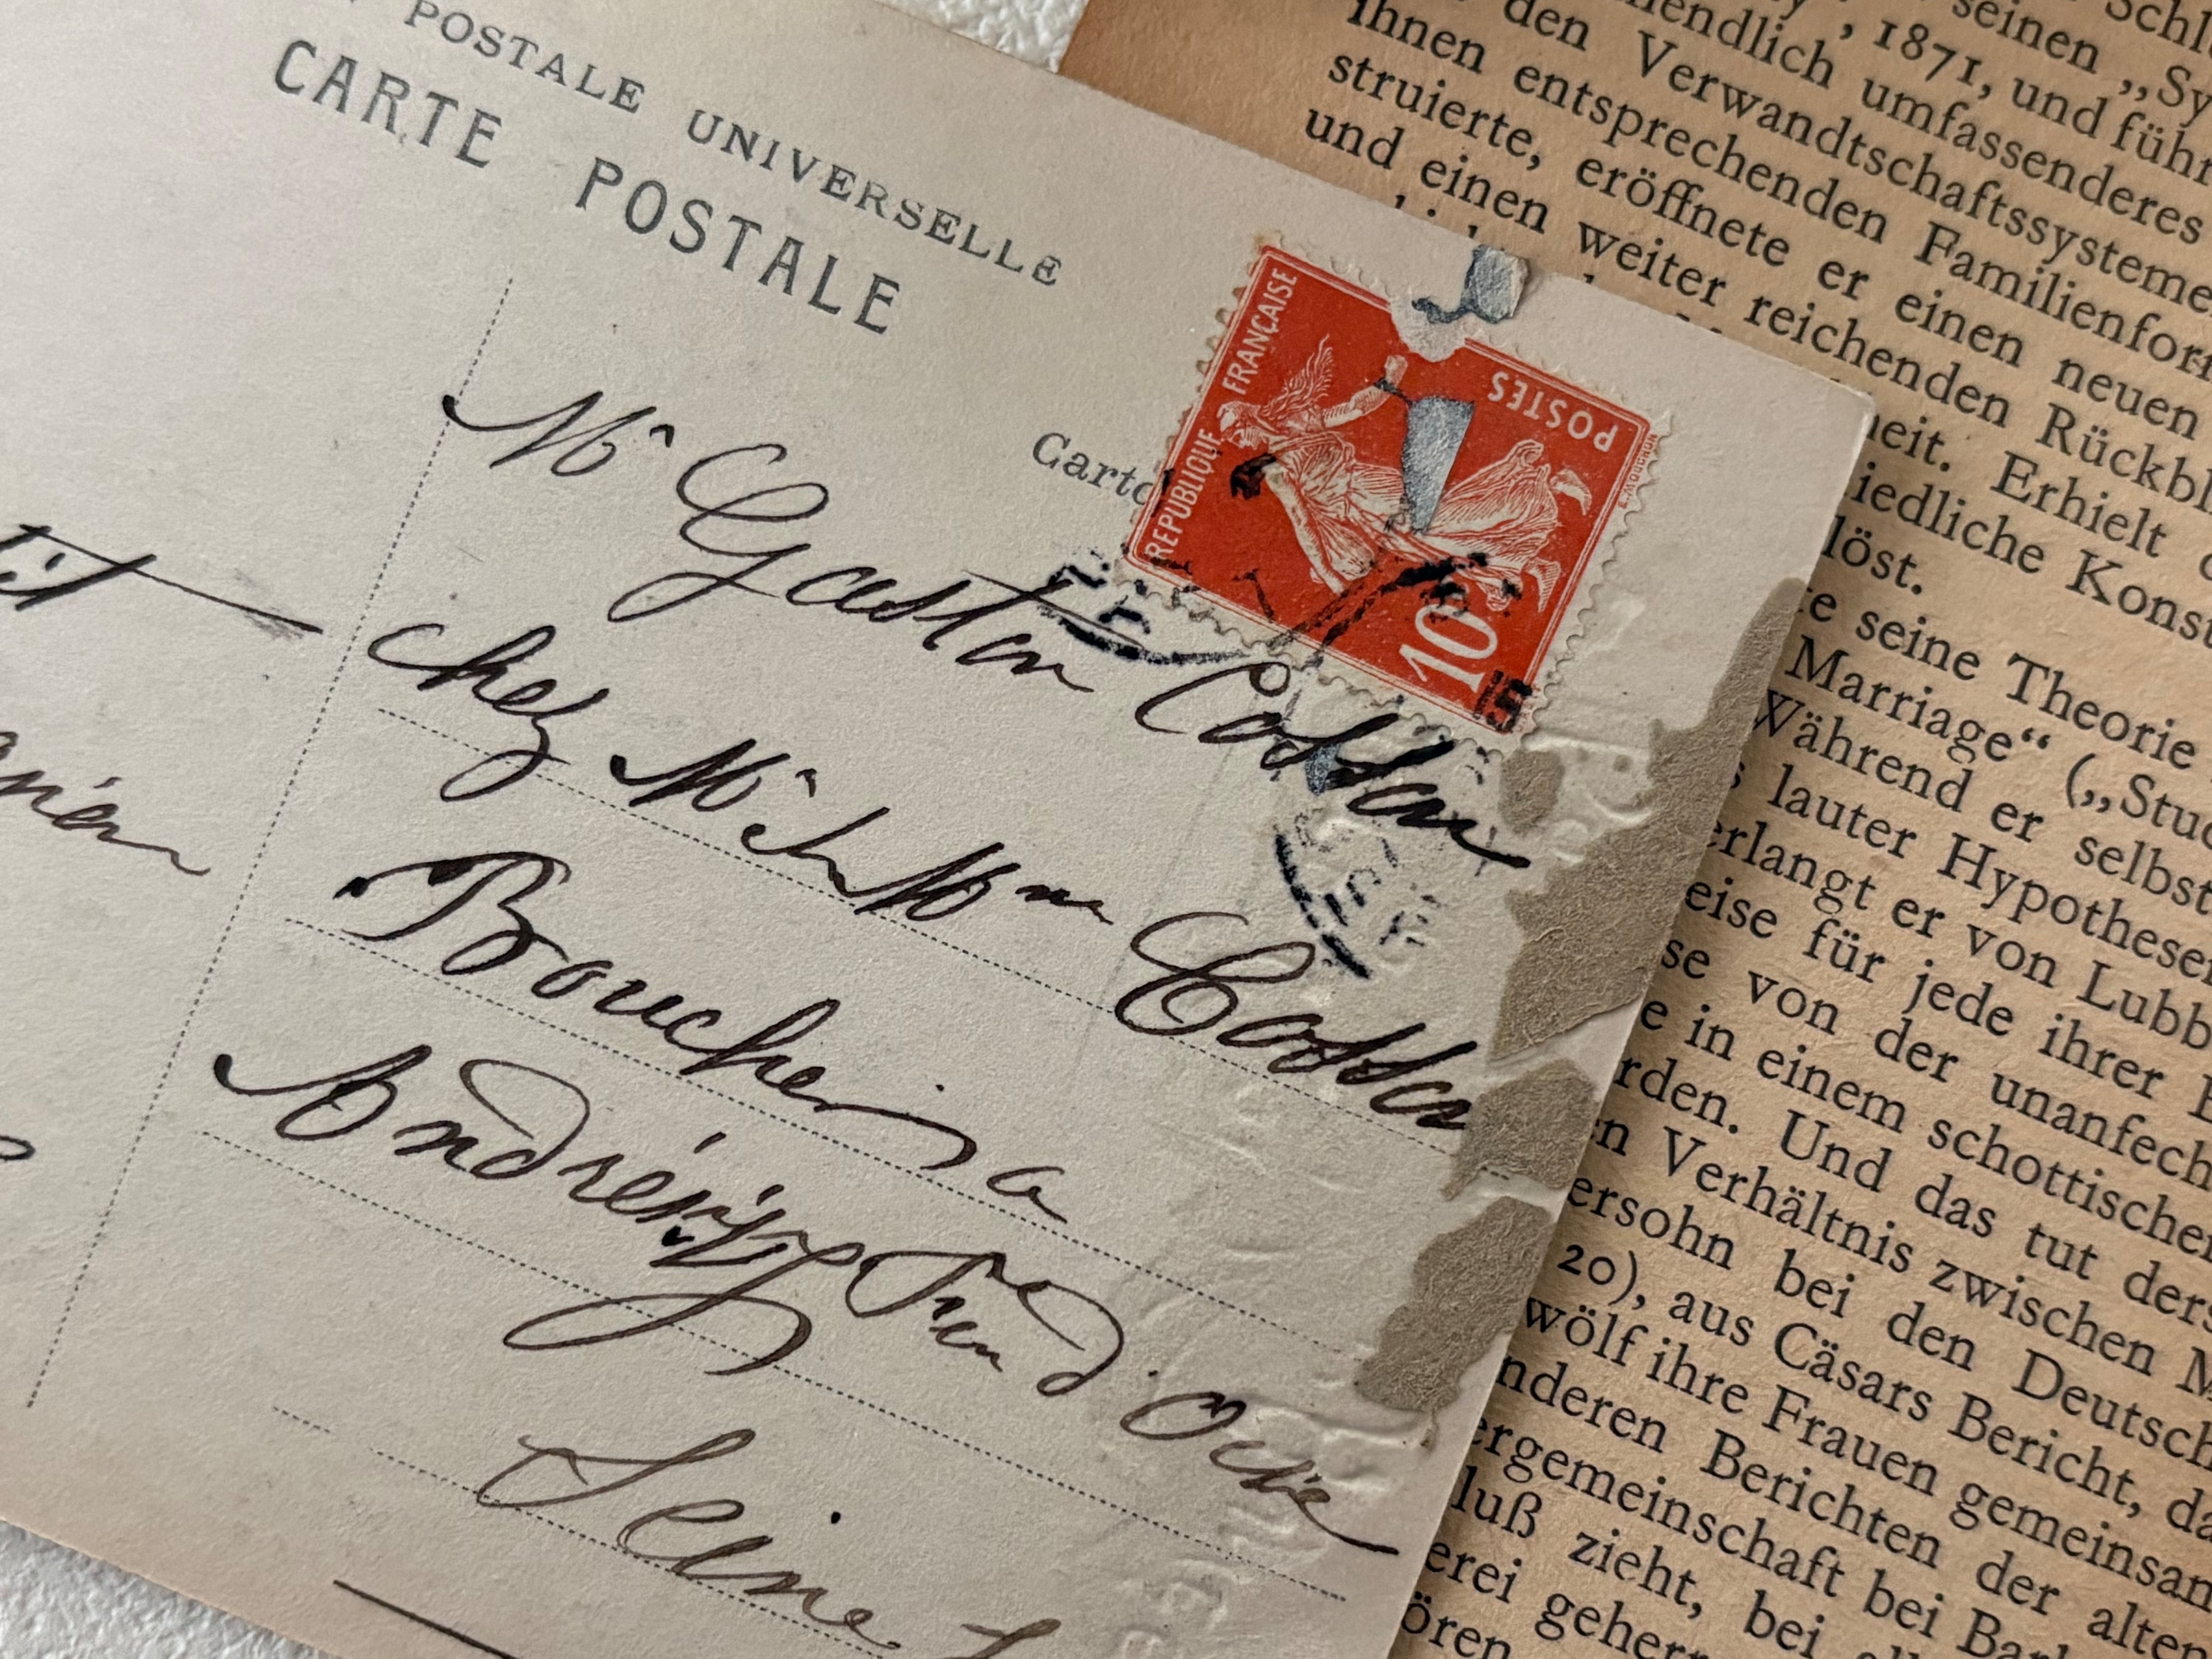 POSTALE UNIVERSELLE
CARTE POSTALE
REPUBLIQUE FRANÇAISE
POSTES
10
Mr Gaston Cosson
chez Mr et Mme Cosson
Boucher à
Andrésy
Seine
seinen „Sy
, 1871, und führ
endlich umfassenderes
den Verwandtschaftssysteme
ihnen entsprechenden Familienfor
struierte, eröffnete er einen neuen
und einen weiter reichenden Rückbl
heit. Erhielt
iedliche Konst
löst.
te seine Theorie
Marriage“ („Stud
Während er selbst
lauter Hypothesen
erlangt er von Lubb
eise für jede ihrer
se von der unanfech
e in einem schottischen
rden. Und das tut ders
n Verhältnis zwischen M
ersohn bei den Deutsch
20), aus Cäsars Bericht, da
wölf ihre Frauen gemeinsam
nderen Berichten der alten
ergemeinschaft bei Barb
luß zieht, bei
erei geherr
ören